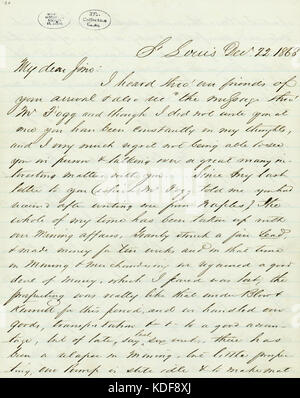 St Louis Dec 22. 1865
My dear Sine:
I heard thro' our friends of
your arrival & also rec'd the message thro'
Mr Figg and though I did not write you at
once you have been constantly in my thoughts,
and I very much regret not being able to see
you in person & talking over a great many in-
teresting matters with you. Since my last
letter to you (which Mr Figg told me you had
received after writing me from Naples) the
whole of my time has been taken up with
our Mining affairs. Granby struck a fine Lead
& made money for ten weeks and in that time
in Mining & Merchandising we regained a good
deal of Money, which I feared was lost, the
prospecting was really like that under Blow &
Kennett for this period, and we handled our
goods, transportation &c &c to a good advan-
tage, but of late, say last six weeks, there has
been a relapse in Mining, but little prospec-
ting, our Pump in state idle & to make mat
alamy
KDF8XJ